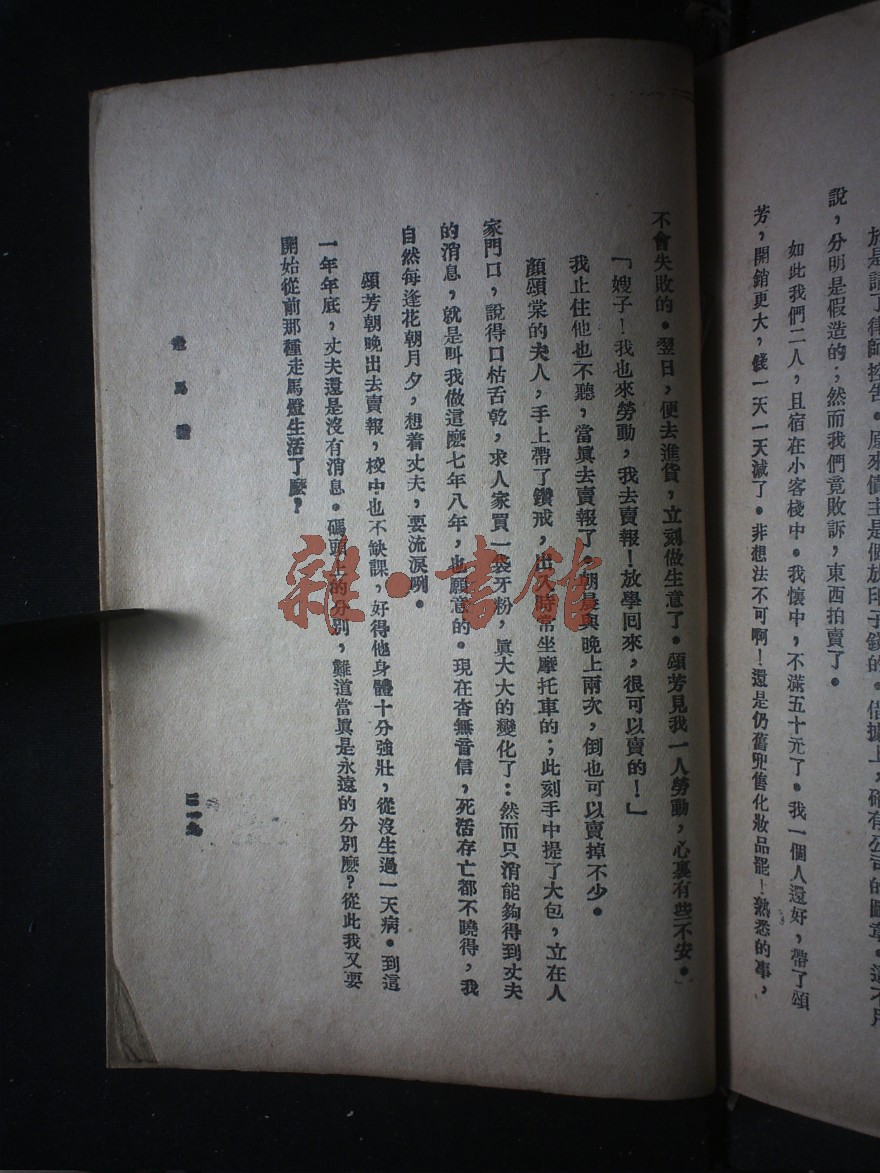 於是請了律師控告。原來債主是個放印子錢的。借據上，確有公司的圖章。這不用
說，分明是假造的；然而我們竟敗訴，東西拍賣了。
如此我們二人，且宿在小客棧中。我懷中，不滿五十元了。我一個人還好，帶了頌
芳，開銷更大，錢一天一天減了。非想法不可啊！還是仍舊兜售化妝品罷！熟悉的事，
不會失敗的。翌日，便去進貨，立刻做生意了。頌芳見我一人勞動，心裏有些不安。
「嫂子！我也來勞動，我去賣報！放學回來，很可以賣的！」
我止住他也不聽，當眞去賣報了。朝晨與晚上兩次，倒也可以賣掉不少。
顏頌棠的夫人，手上帶了鑽戒，出入時常坐摩托車的；此刻手中提了大包，立在人
家門口，說得口枯舌乾，求人家買一袋牙粉，眞大大的變化了：然而只消能夠得到丈夫
的消息，就是叫我做這麽七年八年，也願意的。現在杳無音信，死活存亡都不曉得，我
自然每逢花朝月夕，想着丈夫，要流淚咧。
頌芳朝晚出去賣報，校中也不缺課，好得他身體十分強壯，從沒生過一天病。到這
一年年底，丈夫還是沒有消息。碼頭上的分別，難道當眞是永遠的分別麽？從此我又要
開始從前那種走馬燈生活了麽？
走馬燈
二一九
雜·書館